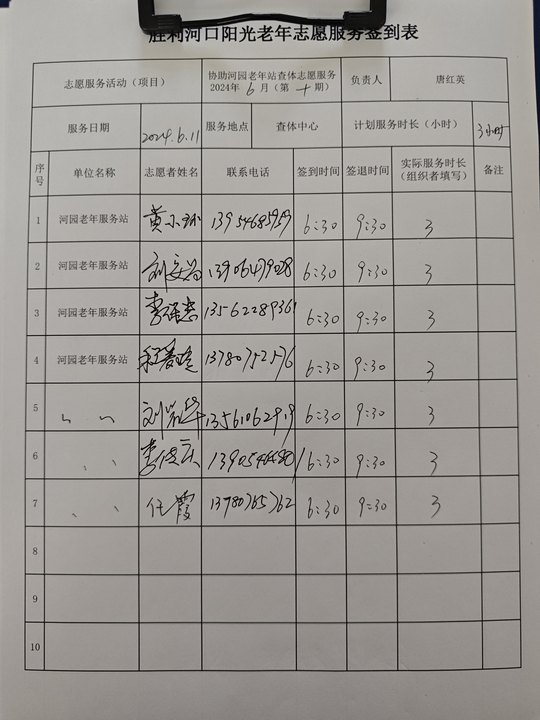 胜利河口阳光老年志愿服务签到表
志愿服务活动（项目） 协助河园老年站查体志愿服务 2024年6月（第十期） 负责人 唐红英
服务日期 2024.6.11 服务地点 查体中心 计划服务时长（小时） 3小时
序号 单位名称 志愿者姓名 联系电话 签到时间 签退时间 实际服务时长（组织者填写） 备注
1 河园老年服务站 6:30 9:30 3
2 河园老年服务站 13906479028 6:30 9:30 3
3 河园老年服务站 13562289361 6:30 9:30 3
4 河园老年服务站 13780752576 6:30 9:30 3
5 〃 〃 13561062919 6:30 9:30 3
6 〃 6:30 9:30 3
7 〃 任霞 13780765762 6:30 9:30 3
8
9
10